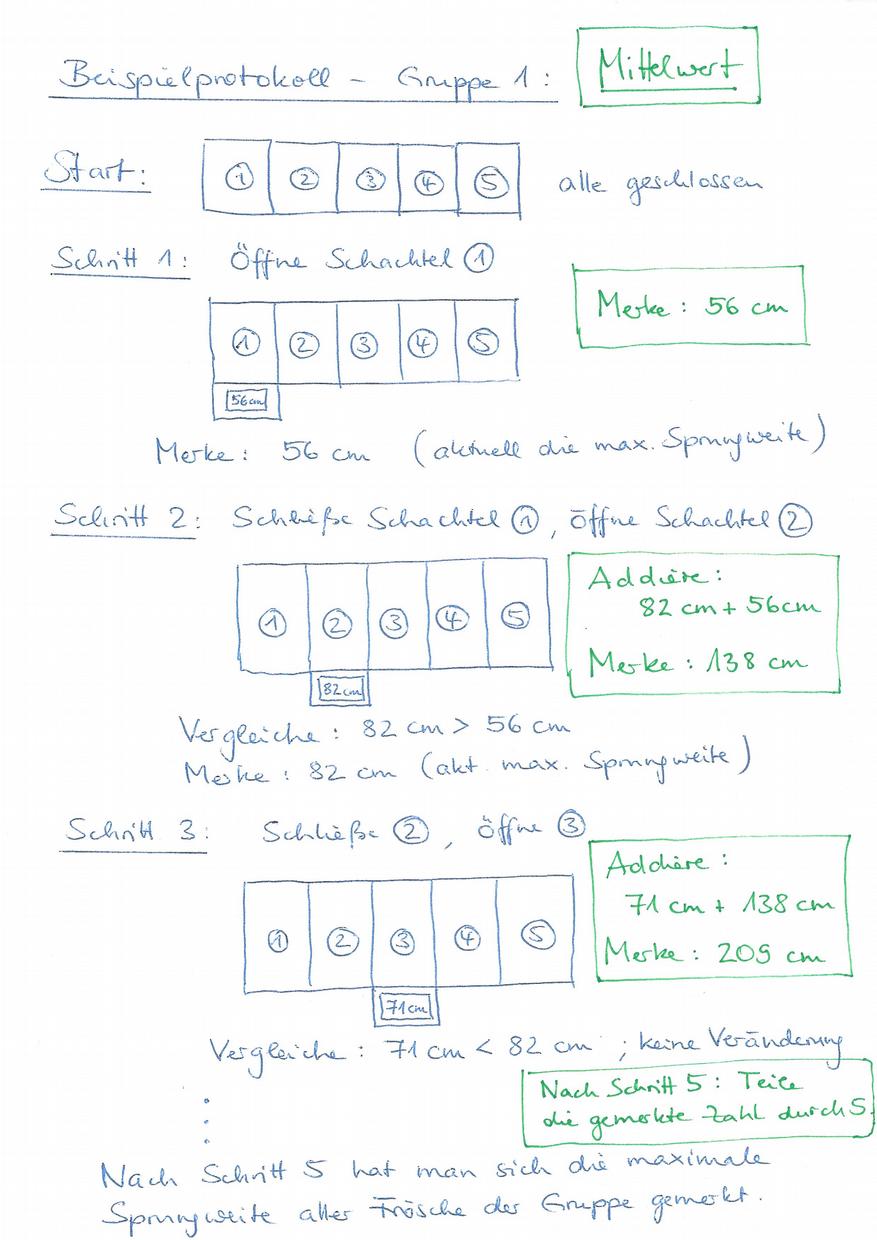 Beispielprotokoll – Gruppe 1:
Mittelwert
Start:
① ② ③ ④ ⑤
alle geschlossen
Schritt 1: Öffne Schachtel ①
① ② ③ ④ ⑤
56cm
Merke: 56 cm
Merke: 56 cm (aktuell die max. Sprungweite)
Schritt 2: Schließe Schachtel ①, öffne Schachtel ②
① ② ③ ④ ⑤
82cm
Addiere:
82 cm + 56cm
Merke: 138 cm
Vergleiche: 82 cm > 56 cm
Merke: 82 cm (akt. max. Sprungweite)
Schritt 3: Schließe ②, öffne ③
① ② ③ ④ ⑤
71cm
Addiere:
71 cm + 138 cm
Merke: 209 cm
Vergleiche: 71 cm < 82 cm ; keine Veränderung
Nach Schritt 5: Teile
die gemerkte Zahl durch 5.
Nach Schritt 5 hat man sich die maximale
Sprungweite aller Frösche der Gruppe gemerkt.